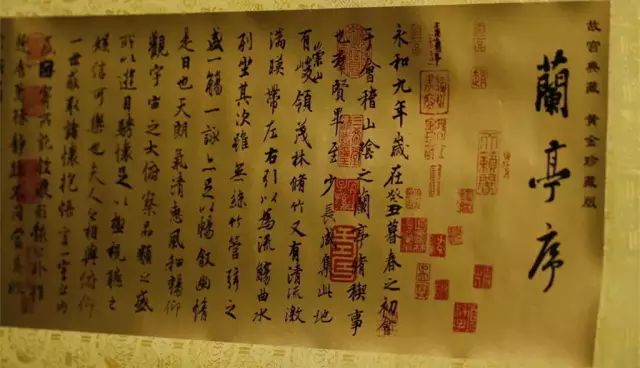 故宮典藏 黃金珍藏版
蘭亭序
永和九年歲在癸丑暮春之初會
于會稽山陰之蘭亭脩稧事
也羣賢畢至少長咸集此地
有崇山峻領茂林脩竹又有清流激
湍暎帶左右引以為流觴曲水
列坐其次雖無絲竹管弦之
盛一觴一詠亦足以暢敘幽情
是日也天朗氣清惠風和暢仰
觀宇宙之大俯察品類之盛
所以遊目騁懷足以極視聽之
娛信可樂也夫人之相與俯仰
一世或取諸懷抱悟言一室之內
或因寄所託放浪形骸之外雖
趣舍萬殊靜躁不同當其欣